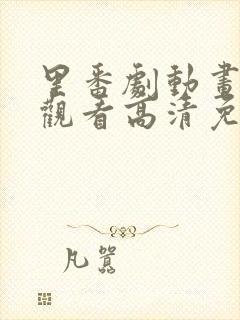 里番劇動畫
觀看高清免
凡囂